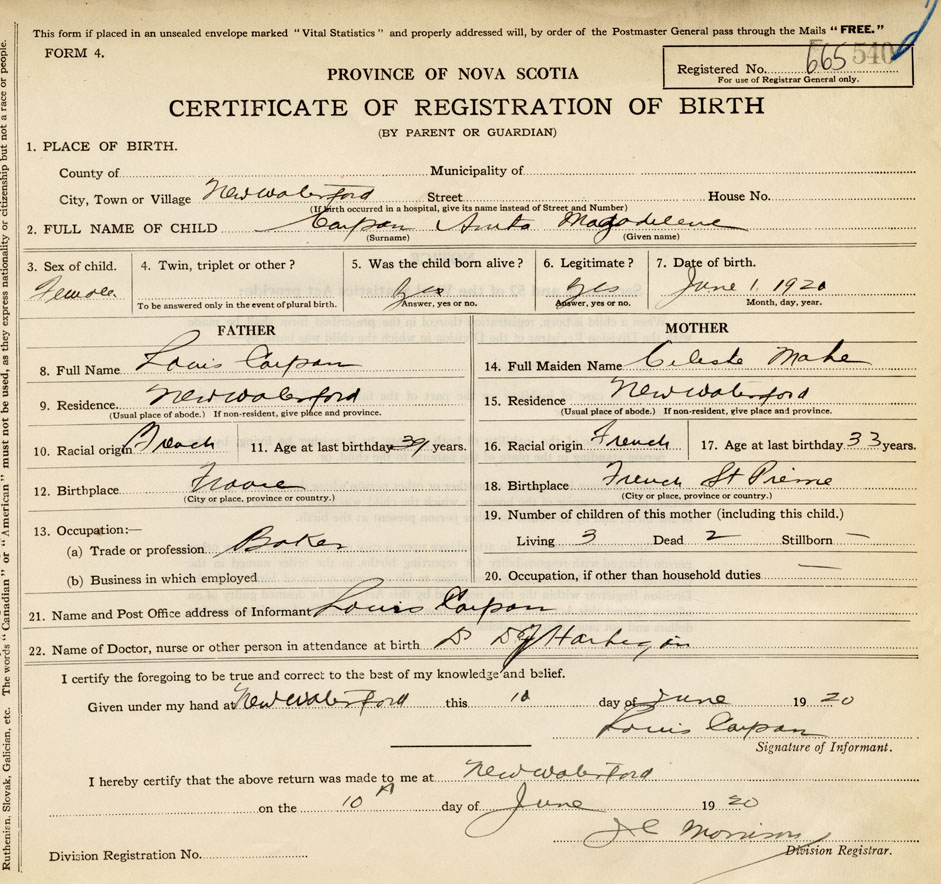 This form if placed in an unsealed envelope marked "Vital Statistics" and properly addressed will, by order of the Postmaster General pass through the Mails "FREE."
FORM 4.
Registered No. 665 540
For use of Registrar General only.
PROVINCE OF NOVA SCOTIA
CERTIFICATE OF REGISTRATION OF BIRTH
(BY PARENT OR GUARDIAN)
1. PLACE OF BIRTH.
County of Municipality of
City, Town or Village New Waterford Street House No.
(If birth occurred in a hospital, give its name instead of Street and Number)
2. FULL NAME OF CHILD Carpan Anita Magadelene
(Surname) (Given name)
3. Sex of child. 4. Twin, triplet or other? 5. Was the child born alive? 6. Legitimate? 7. Date of birth.
Female yes yes June 1, 1920
To be answered only in the event of plural birth. Answer, yes or no. Answer, yes or no. Month, day, year.
FATHER
8. Full Name Louis Carpan
9. Residence New Waterford
(Usual place of abode.) If non-resident, give place and province.
10. Racial origin French 11. Age at last birthday 39 years.
12. Birthplace
(City or place, province or country.)
13. Occupation:—
(a) Trade or profession Baker
(b) Business in which employed
MOTHER
14. Full Maiden Name Celeste Mahe
15. Residence New Waterford
(Usual place of abode.) If non-resident, give place and province.
16. Racial origin French 17. Age at last birthday 33 years.
18. Birthplace French St Pierre
(City or place, province or country.)
19. Number of children of this mother (including this child.)
Living 3 Dead 2 Stillborn —
20. Occupation, if other than household duties —
21. Name and Post Office address of Informant Louis Carpan
22. Name of Doctor, nurse or other person in attendance at birth Dr
I certify the foregoing to be true and correct to the best of my knowledge and belief.
Given under my hand at New Waterford this 10 day of June 19 20
Louis Carpan
Signature of Informant.
I hereby certify that the above return was made to me at New Waterford
on the 10 day of June 19 20
J C Morrison
Division Registration No. Division Registrar.
Ruthenian, Slovak, Galician, etc. The words "Canadian" or "American" must not be used, as they express nationality or citizenship but not a race or people.